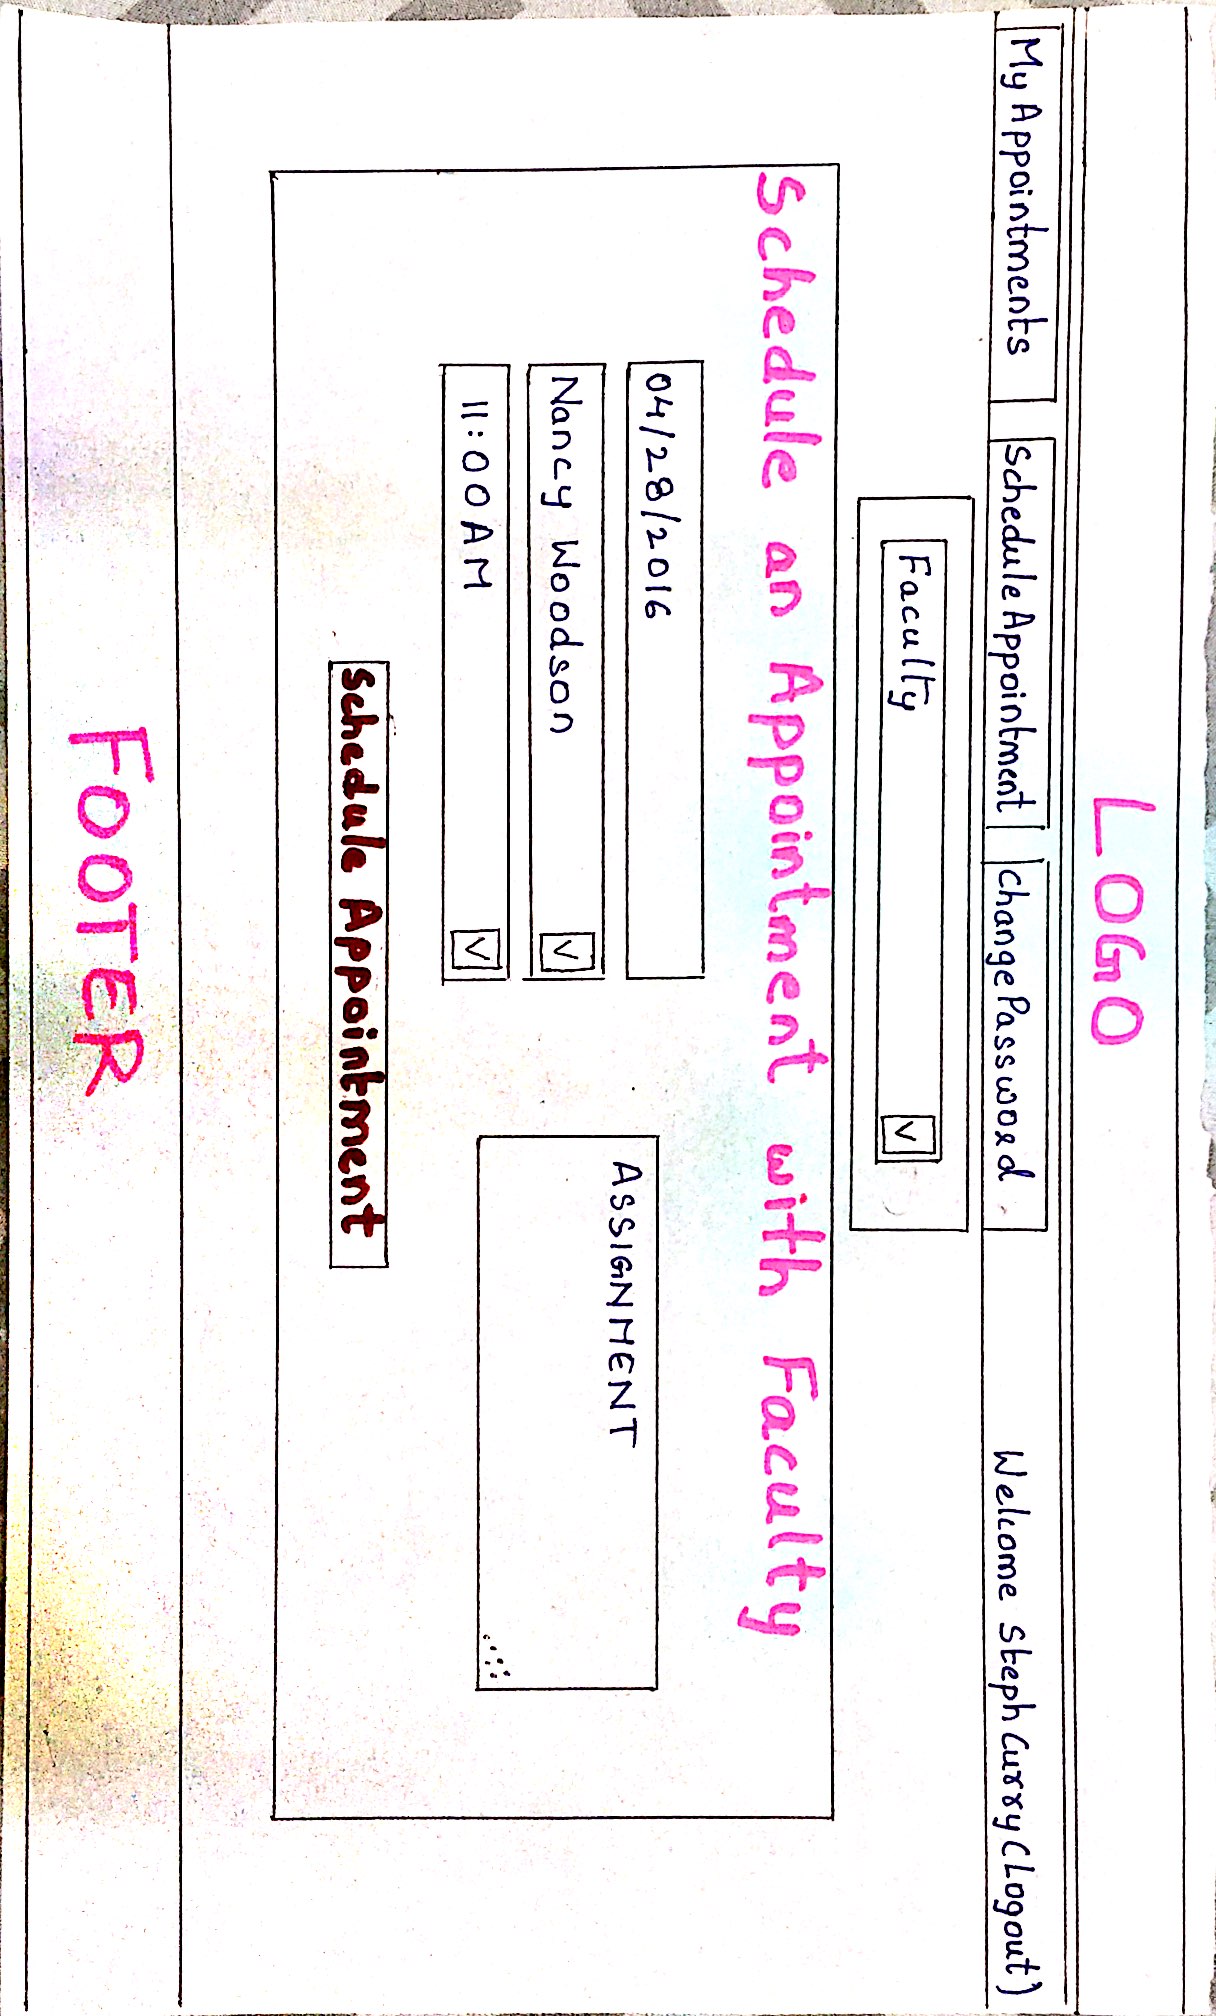 LOGO
My Appointments Schedule Appointment Change Password Welcome Steph Curry (Logout)
Faculty V
Schedule an Appointment with Faculty
04/28/2016
Nancy Woodson V
11:00AM V
ASSIGNMENT
Schedule Appointment
FOOTER